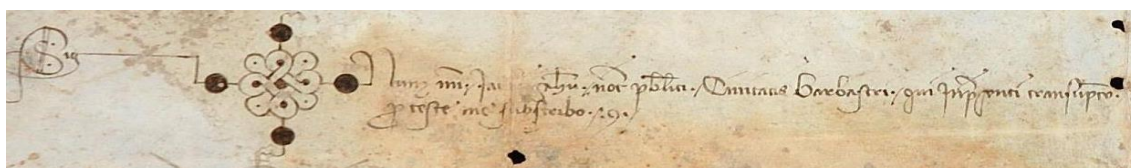 Sig num mei Ja not publici Civitatis Barbastri qui in presenti transumpto
pro teste me subscribo